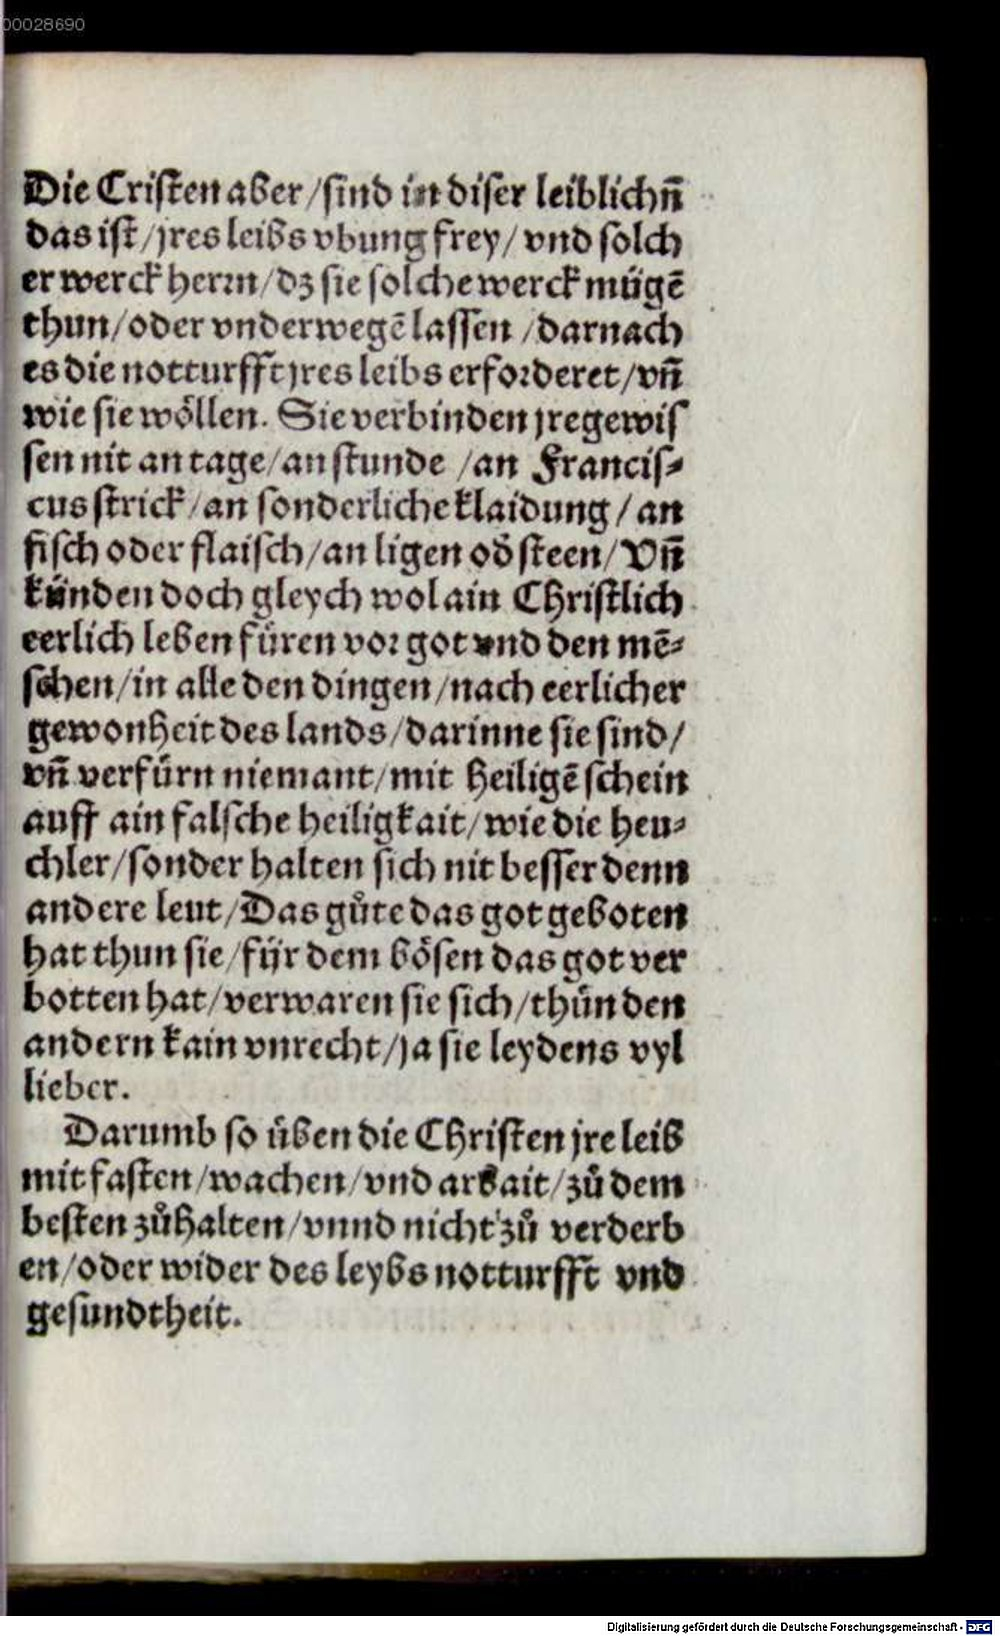 00028690
Die Cristen aber/sind in diser leiblichn̄
das ist/jres leibs vbung frey/ vnd solch
er werck herrn/dz sie solche werck mügē
thun/oder vnderwegē lassen /darnach
es die notturfft jres leibs erforderet/vn̄
wie sie wöllen. Sie verbinden jre gewis
sen nit an tage/an stunde /an Francis⸗
cus strick/an sonderliche klaidung/ an
fisch oder flaisch/an ligen od̄ steen/ Vn̄
künden doch gleych wol ain Christlich
eerlich leben füren vor got vnd den mē⸗
schen/in alle den dingen/nach eerlicher
gewonheit des lands/darinne sie sind/
vn̄ verfürn niemant/mit heiligē schein
auff ain falsche heiligkait/wie die heu⸗
chler/sonder halten sich nit besser denn
andere leut/Das gůte das got geboten
hat thun sie/für dem bösen das got ver
botten hat/verwaren sie sich/thün den
andern kain vnrecht/ja sie leydens vyl
lieber.
Darumb so üben die Christen jre leib
mit fasten/wachen/vnd arbait/zů dem
besten zůhalten/vnnd nicht zů verderb
en/oder wider des leybs notturfft vnd
gesundtheit.
Digitalisierung gefördert durch die Deutsche Forschungsgemeinschaft - DFG